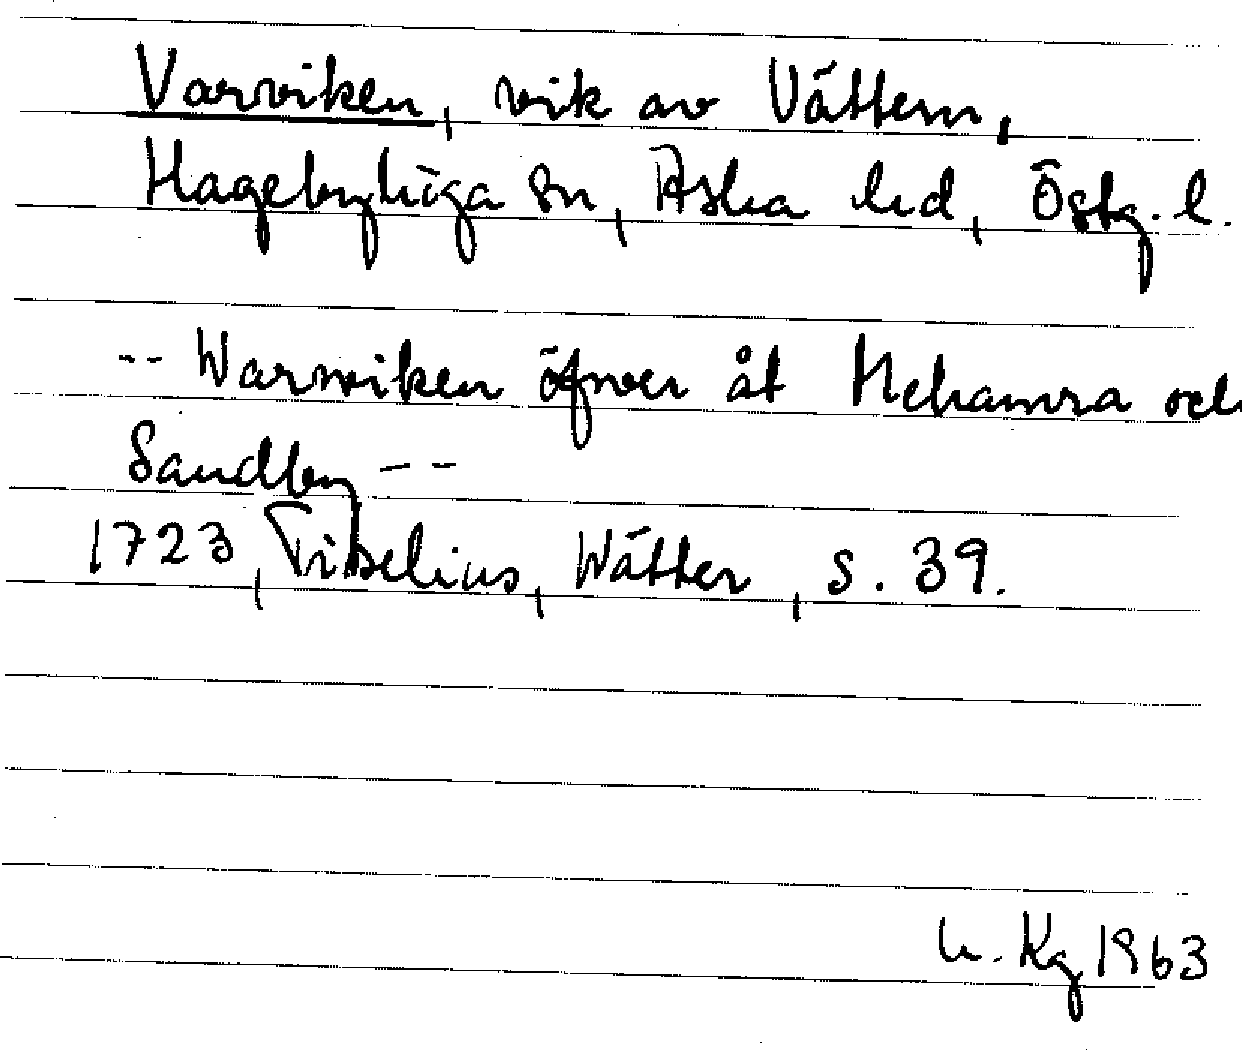 Varviken, vik av Vättern,
Hagebyhöga sn, Aska hd, Östg. l.
-- Warwiken öfwer åt Hehamra och
Sandby --
1723, Tiselius, Wätter, s. 39.
Kg 1963